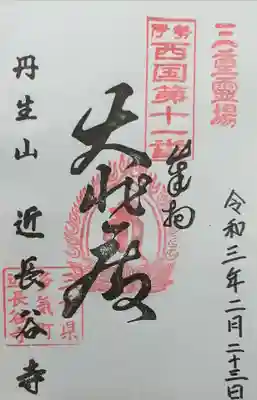 令和三年二月二十三日
伊勢
西国第十一番
奉拝
大悲殿
三重県
多気町
近長谷寺
丹生山 近長谷寺